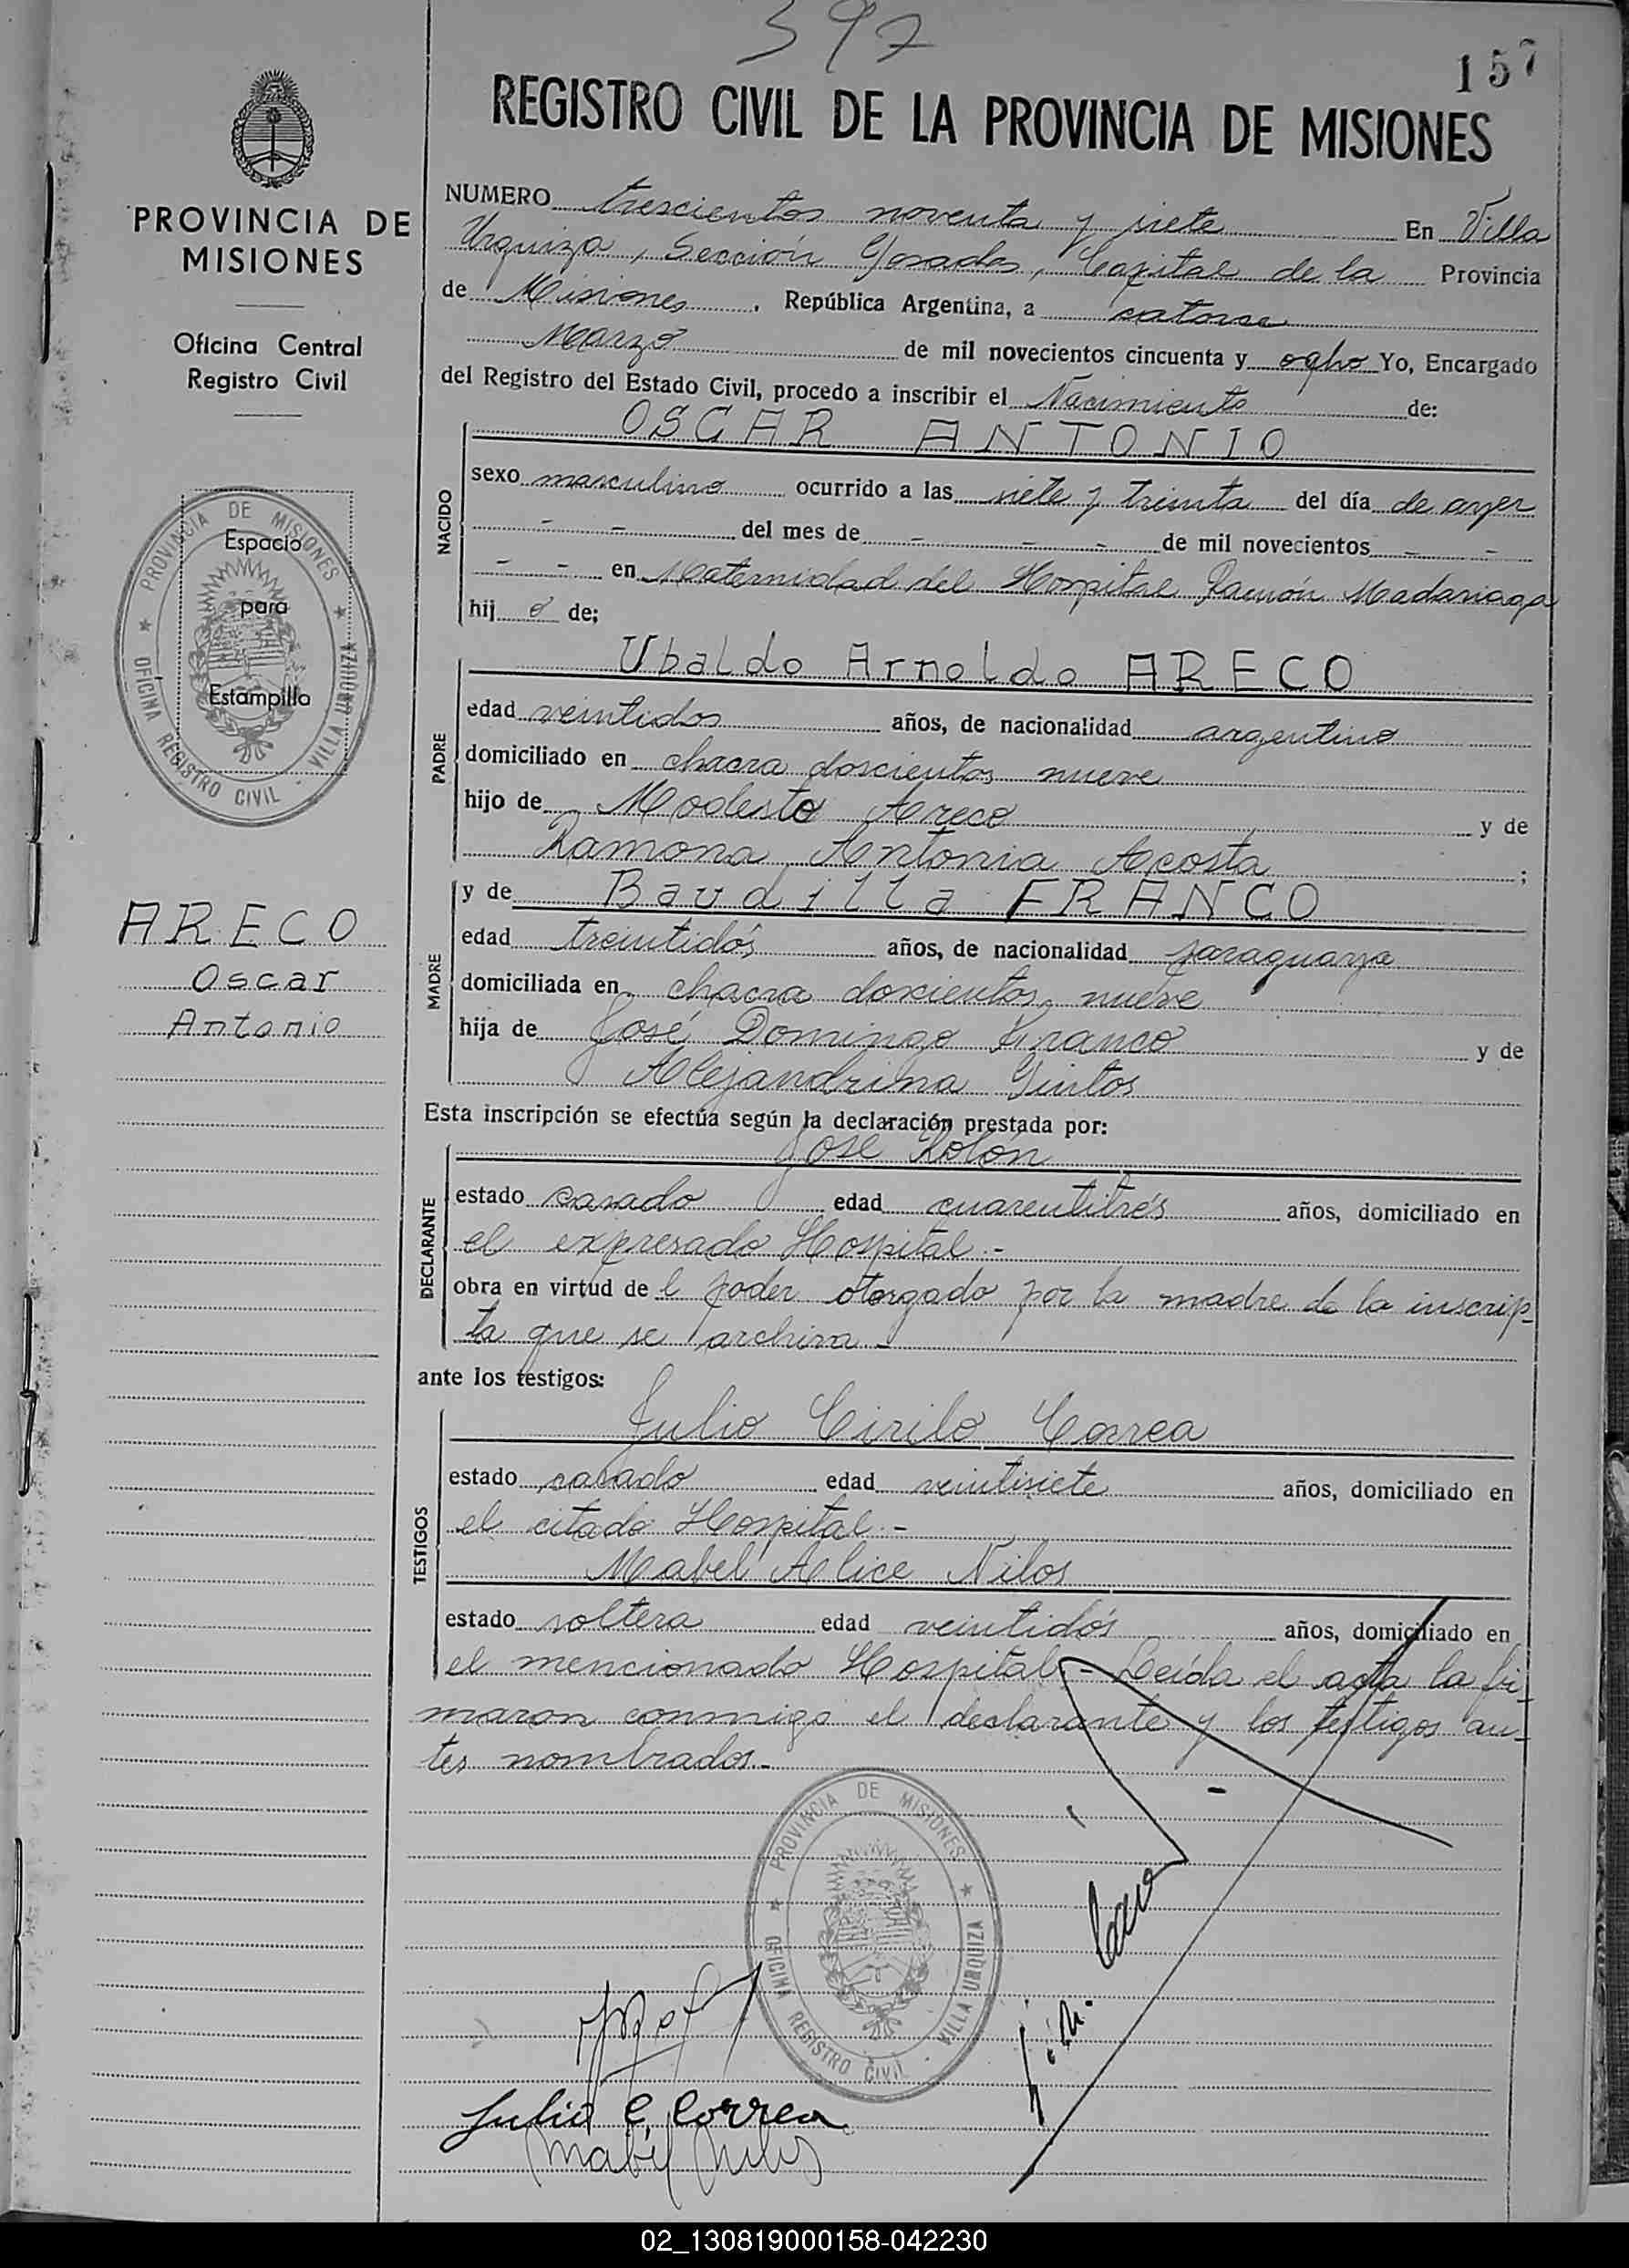 397
157
REGISTRO CIVIL DE LA PROVINCIA DE MISIONES
PROVINCIA DE
MISIONES
Oficina Central
Registro Civil
PROVINCIA DE MISIONES
OFICINA REGISTRO CIVIL - VILLA URQUIZA
Espacio
para
Estampilla
ARECO
Oscar
Antonio
NUMERO trescientos noventa y siete En Villa
Urquiza, Sección Posadas, Capital de la Provincia
de Misiones, República Argentina, a catorce
Marzo de mil novecientos cincuenta y ocho Yo, Encargado
del Registro del Estado Civil, procedo a inscribir el Nacimiento de:
NACIDO
OSCAR ANTONIO
sexo masculino ocurrido a las siete y treinta del día de ayer
- - del mes de - - - de mil novecientos - -
- - en Maternidad del Hospital Ramón Madariaga
hij o de;
PADRE
Ubaldo Arnoldo ARECO
edad veintidos años, de nacionalidad argentino
domiciliado en chacra doscientos nueve
hijo de Modesto Areco y de
Ramona Antonia Acosta ;
MADRE
y de Baudilla FRANCO
edad treintidós años, de nacionalidad paraguaya
domiciliada en chacra doscientos nueve
hija de José Domingo Franco y de
Alejandrina
Esta inscripción se efectúa según la declaración prestada por:
DECLARANTE
José Rolón
estado casado edad cuarentitrés años, domiciliado en
el expresado Hospital.-
obra en virtud de l poder otorgado por la madre de la inscrip-
ta que se archiva.-
ante los testigos:
TESTIGOS
Julio Cirilo Correa
estado casado edad veintisiete años, domiciliado en
el citado Hospital.-
Mabel Alice Nilos
estado soltera edad veintidós años, domiciliado en
el mencionado Hospital.- Leída el acta la fir-
maron conmigo el declarante y los testigos an-
tes nombrados.-
PROVINCIA DE MISIONES
OFICINA REGISTRO CIVIL - VILLA URQUIZA
Julio C. Correa
Mabel Nilos
02_130819000158-042230